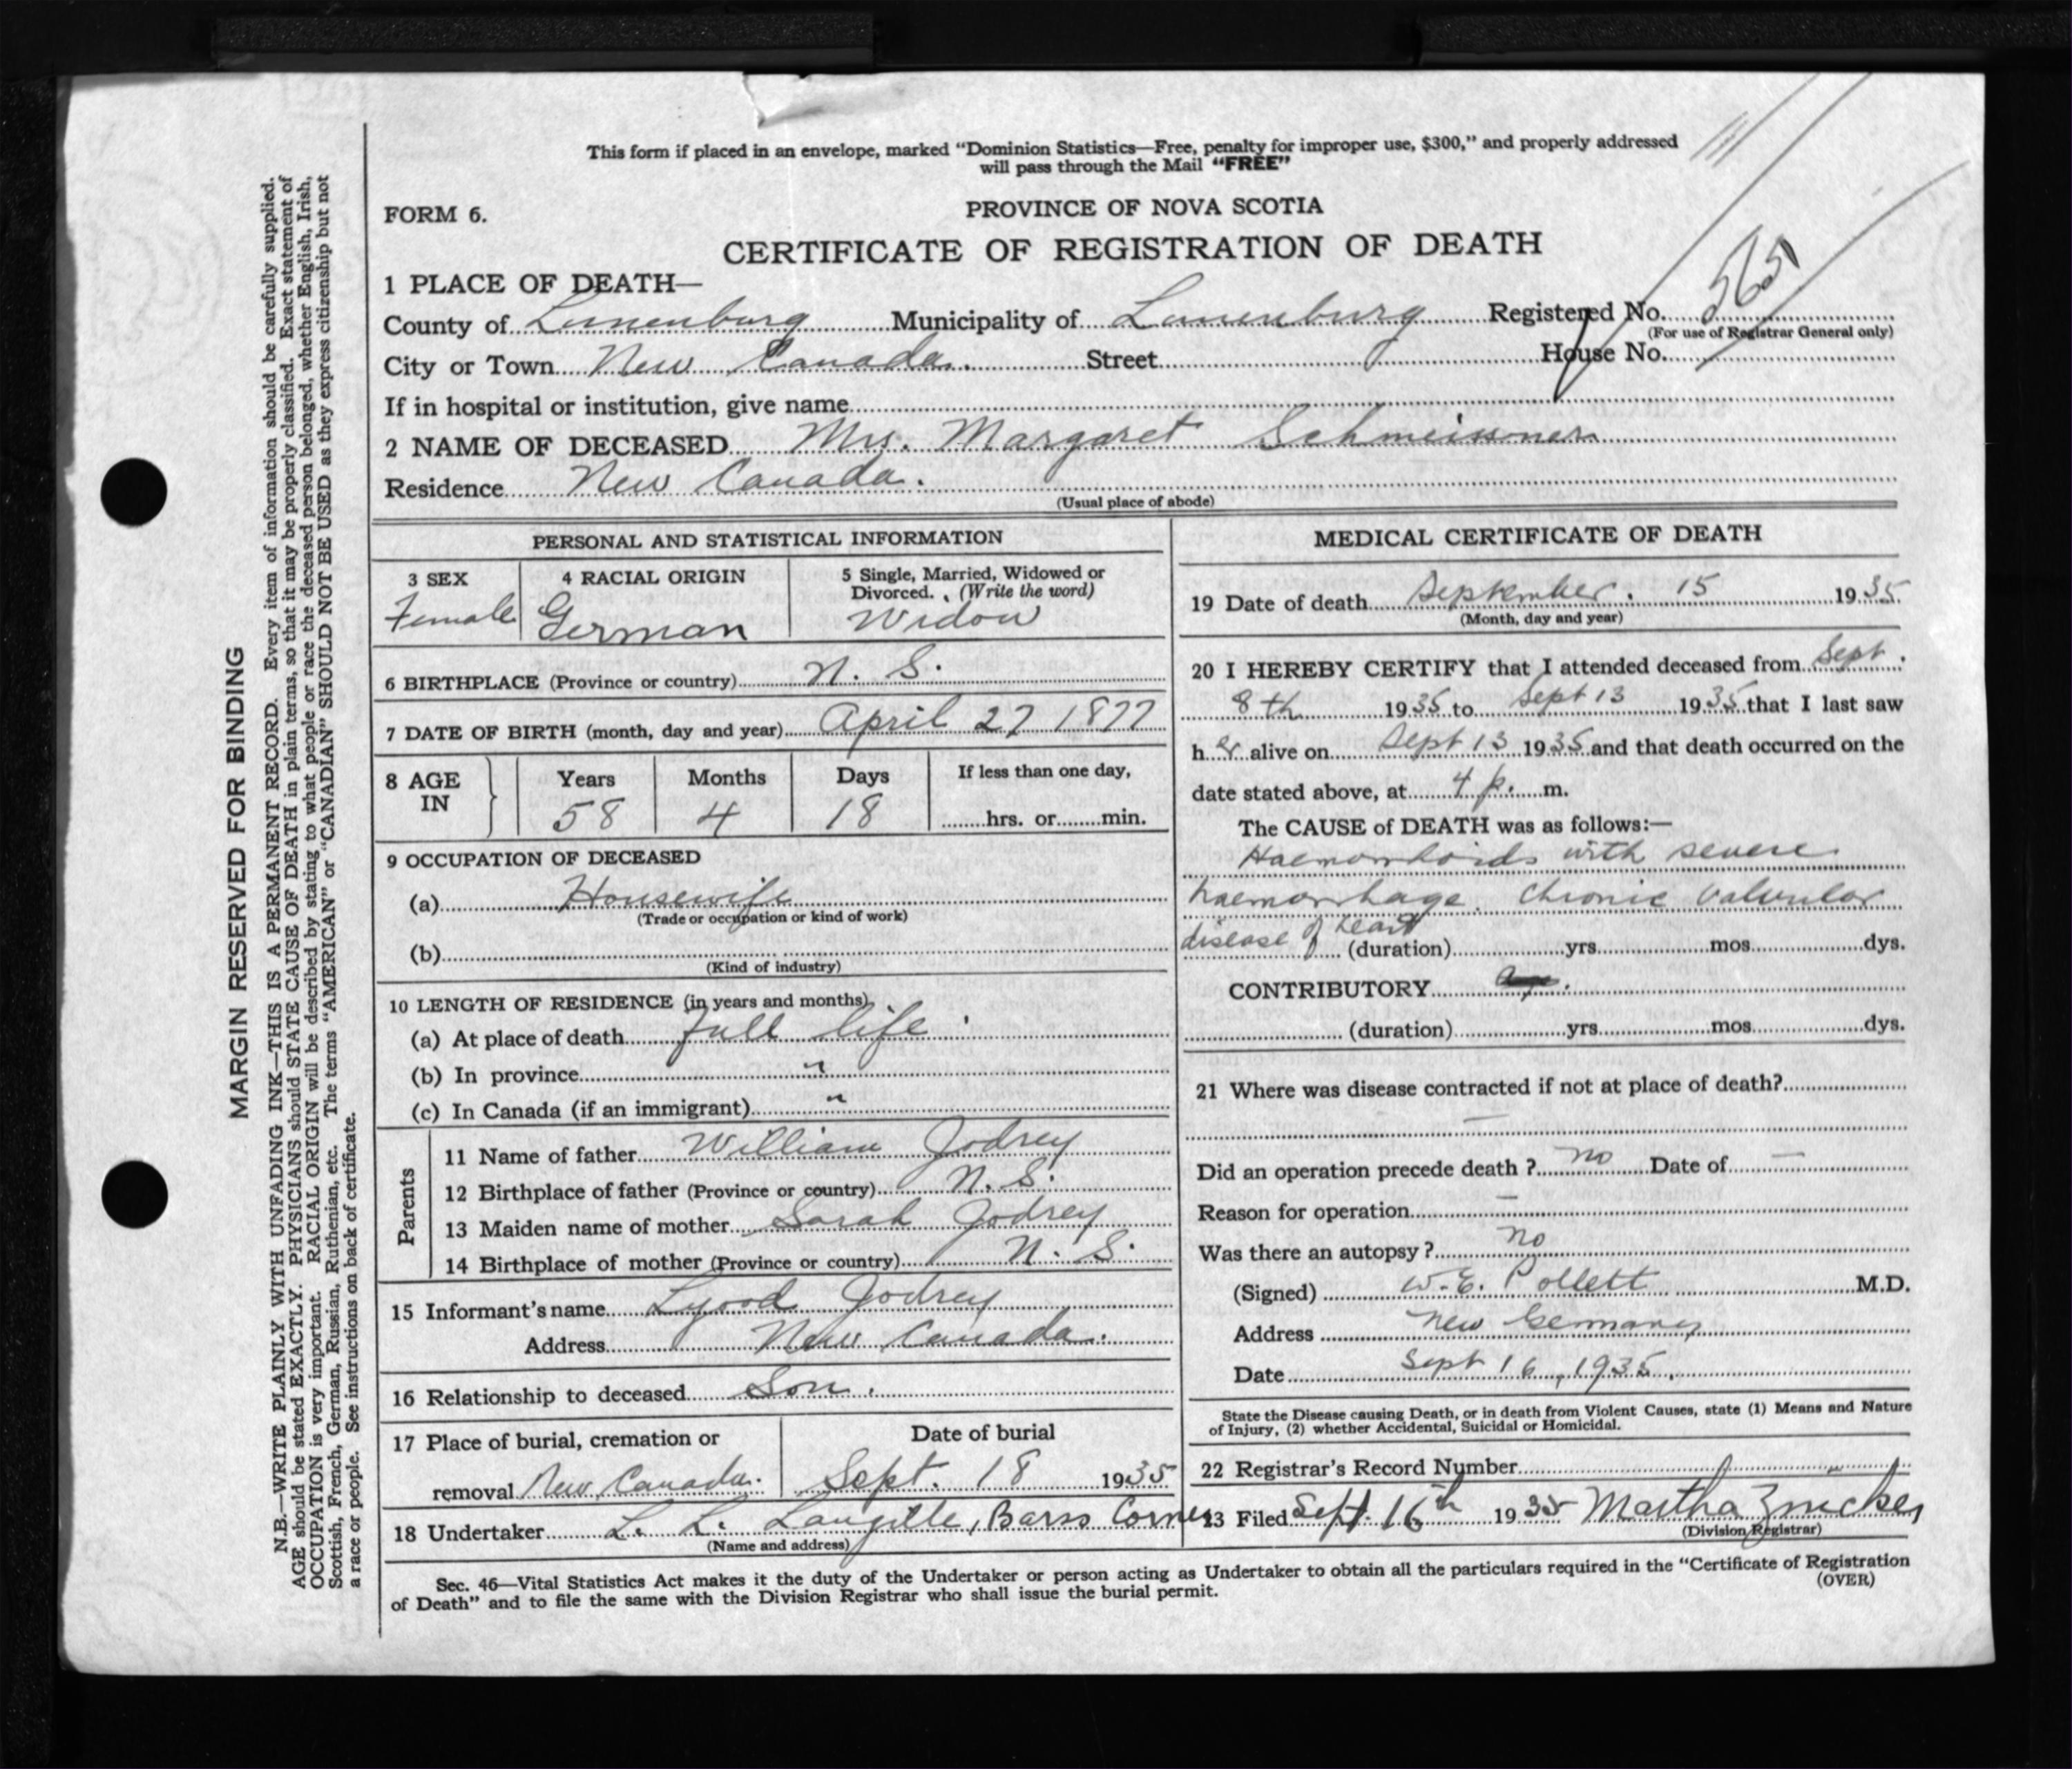 This form if placed in an envelope, marked “Dominion Statistics—Free, penalty for improper use, $300,” and properly addressed
will pass through the Mail “FREE”
FORM 6.
PROVINCE OF NOVA SCOTIA
CERTIFICATE OF REGISTRATION OF DEATH
1 PLACE OF DEATH—
County of Lunenburg Municipality of Lunenburg Registered No. 565
(For use of Registrar General only)
City or Town New Canada. Street House No.
If in hospital or institution, give name
2 NAME OF DECEASED Mrs. Margaret Schmeissner
Residence New Canada.
(Usual place of abode)
PERSONAL AND STATISTICAL INFORMATION
3 SEX
Female
4 RACIAL ORIGIN
German
5 Single, Married, Widowed or
Divorced. (Write the word)
Widow
6 BIRTHPLACE (Province or country) N. S.
7 DATE OF BIRTH (month, day and year) April 27 1877
8 AGE IN
Years Months Days If less than one day,
58 4 18 hrs. or min.
9 OCCUPATION OF DECEASED
(a) Housewife
(Trade or occupation or kind of work)
(b)
(Kind of industry)
10 LENGTH OF RESIDENCE (in years and months)
(a) At place of death full life.
(b) In province "
(c) In Canada (if an immigrant) "
Parents
11 Name of father William Jodrey
12 Birthplace of father (Province or country) N. S.
13 Maiden name of mother Sarah Jodrey
14 Birthplace of mother (Province or country) N. S.
15 Informant's name Lyood Jodrey
Address New Canada.
16 Relationship to deceased Son.
17 Place of burial, cremation or
removal New Canada.
Date of burial
Sept. 18 1935
18 Undertaker L. L. Langille, Barss Corner
(Name and address)
MEDICAL CERTIFICATE OF DEATH
19 Date of death September. 15 1935
(Month, day and year)
20 I HEREBY CERTIFY that I attended deceased from Sept.
8th 1935 to Sept 13 1935 that I last saw
h er alive on Sept 13 1935 and that death occurred on the
date stated above, at 4 p. m.
The CAUSE of DEATH was as follows:—
Haemorrhoids with severe
haemorrhage. Chronic valvular
disease of heart (duration) yrs. mos. dys.
CONTRIBUTORY
(duration) yrs. mos. dys.
21 Where was disease contracted if not at place of death? —
Did an operation precede death? no Date of —
Reason for operation —
Was there an autopsy? no
(Signed) W. E. Pollett M.D.
Address New Germany
Date Sept 16, 1935.
State the Disease causing Death, or in death from Violent Causes, state (1) Means and Nature
of Injury, (2) whether Accidental, Suicidal or Homicidal.
22 Registrar's Record Number
23 Filed Sept. 16th 1935 Martha Zwicker
(Division Registrar)
Sec. 46—Vital Statistics Act makes it the duty of the Undertaker or person acting as Undertaker to obtain all the particulars required in the “Certificate of Registration
of Death” and to file the same with the Division Registrar who shall issue the burial permit.
(OVER)
MARGIN RESERVED FOR BINDING
N.B.—WRITE PLAINLY WITH UNFADING INK—THIS IS A PERMANENT RECORD. Every item of information should be carefully supplied.
AGE should be stated EXACTLY. PHYSICIANS should STATE CAUSE OF DEATH in plain terms, so that it may be properly classified. Exact statement of
OCCUPATION is very important. RACIAL ORIGIN will be described by stating to what people or race the deceased person belonged, whether English, Irish,
Scottish, French, German, Russian, Ruthenian, etc. The terms “AMERICAN” or “CANADIAN” SHOULD NOT BE USED as they express citizenship but not
a race or people. See instructions on back of certificate.